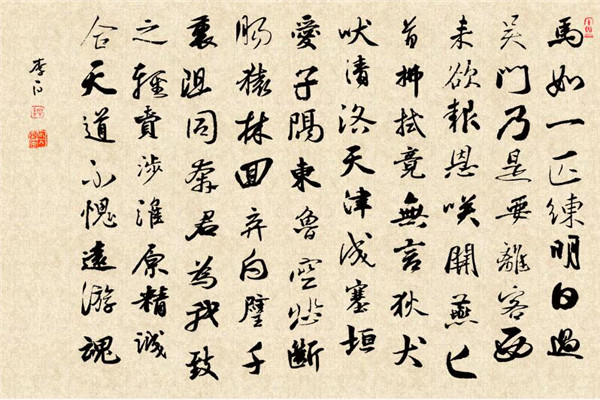 馬如一匹練明日過
吴門乃是要離客西
来欲報恩咲開燕匕
首拂拭竟無言狄犬
吠清洛天津成塞垣
愛子隔東魯空悲断
腸猿林回弃白璧千
裏阻同奔君為我致
之輕賫涉淮原精誠
合天道不愧遠游魂
李白